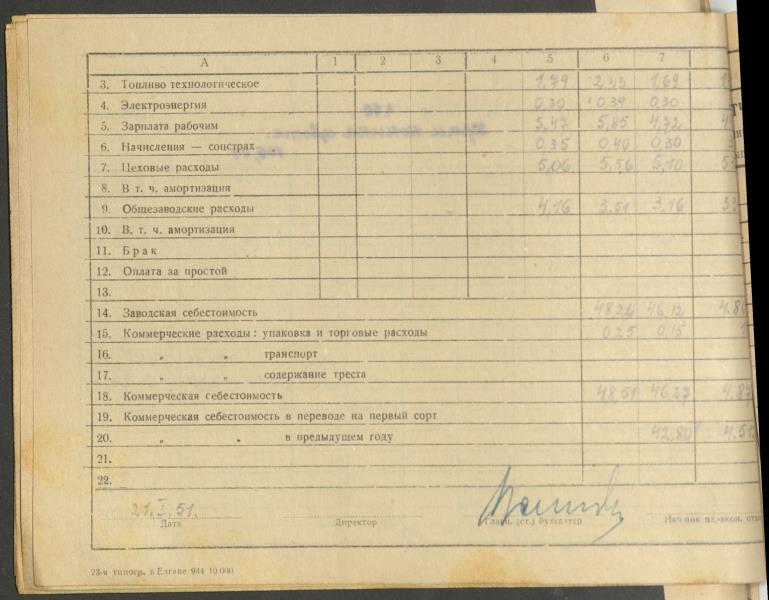 А 1 2 3 4 5 6 7
3. Топливо технологическое 1,79 2,43 1,69
4. Электроэнергия 0,30 0,39 0,30
5. Зарплата рабочим 5,47 5,85 4,72
6. Начисления — соцстрах 0,35 0,40 0,30
7. Цеховые расходы 5,06 5,56 5,10
8. В т. ч. амортизация
9. Общезаводские расходы 4,16 3,51 3,16
10. В. т. ч. амортизация
11. Брак
12. Оплата за простой
13.
14. Заводская себестоимость 48,26 46,12
15. Коммерческие расходы: упаковка и торговые расходы 0,25 0,15
16. „ „ транспорт
17. „ „ содержание треста
18. Коммерческая себестоимость 48,51 46,27
19. Коммерческая себестоимость в переводе на первый сорт
20. „ „ в предыдущем году 42,80
21.
22.
21.I.51.
Дата Директор Главн. (ст.) бухгалтер
23-я типогр. в Елгаве 944 10 000